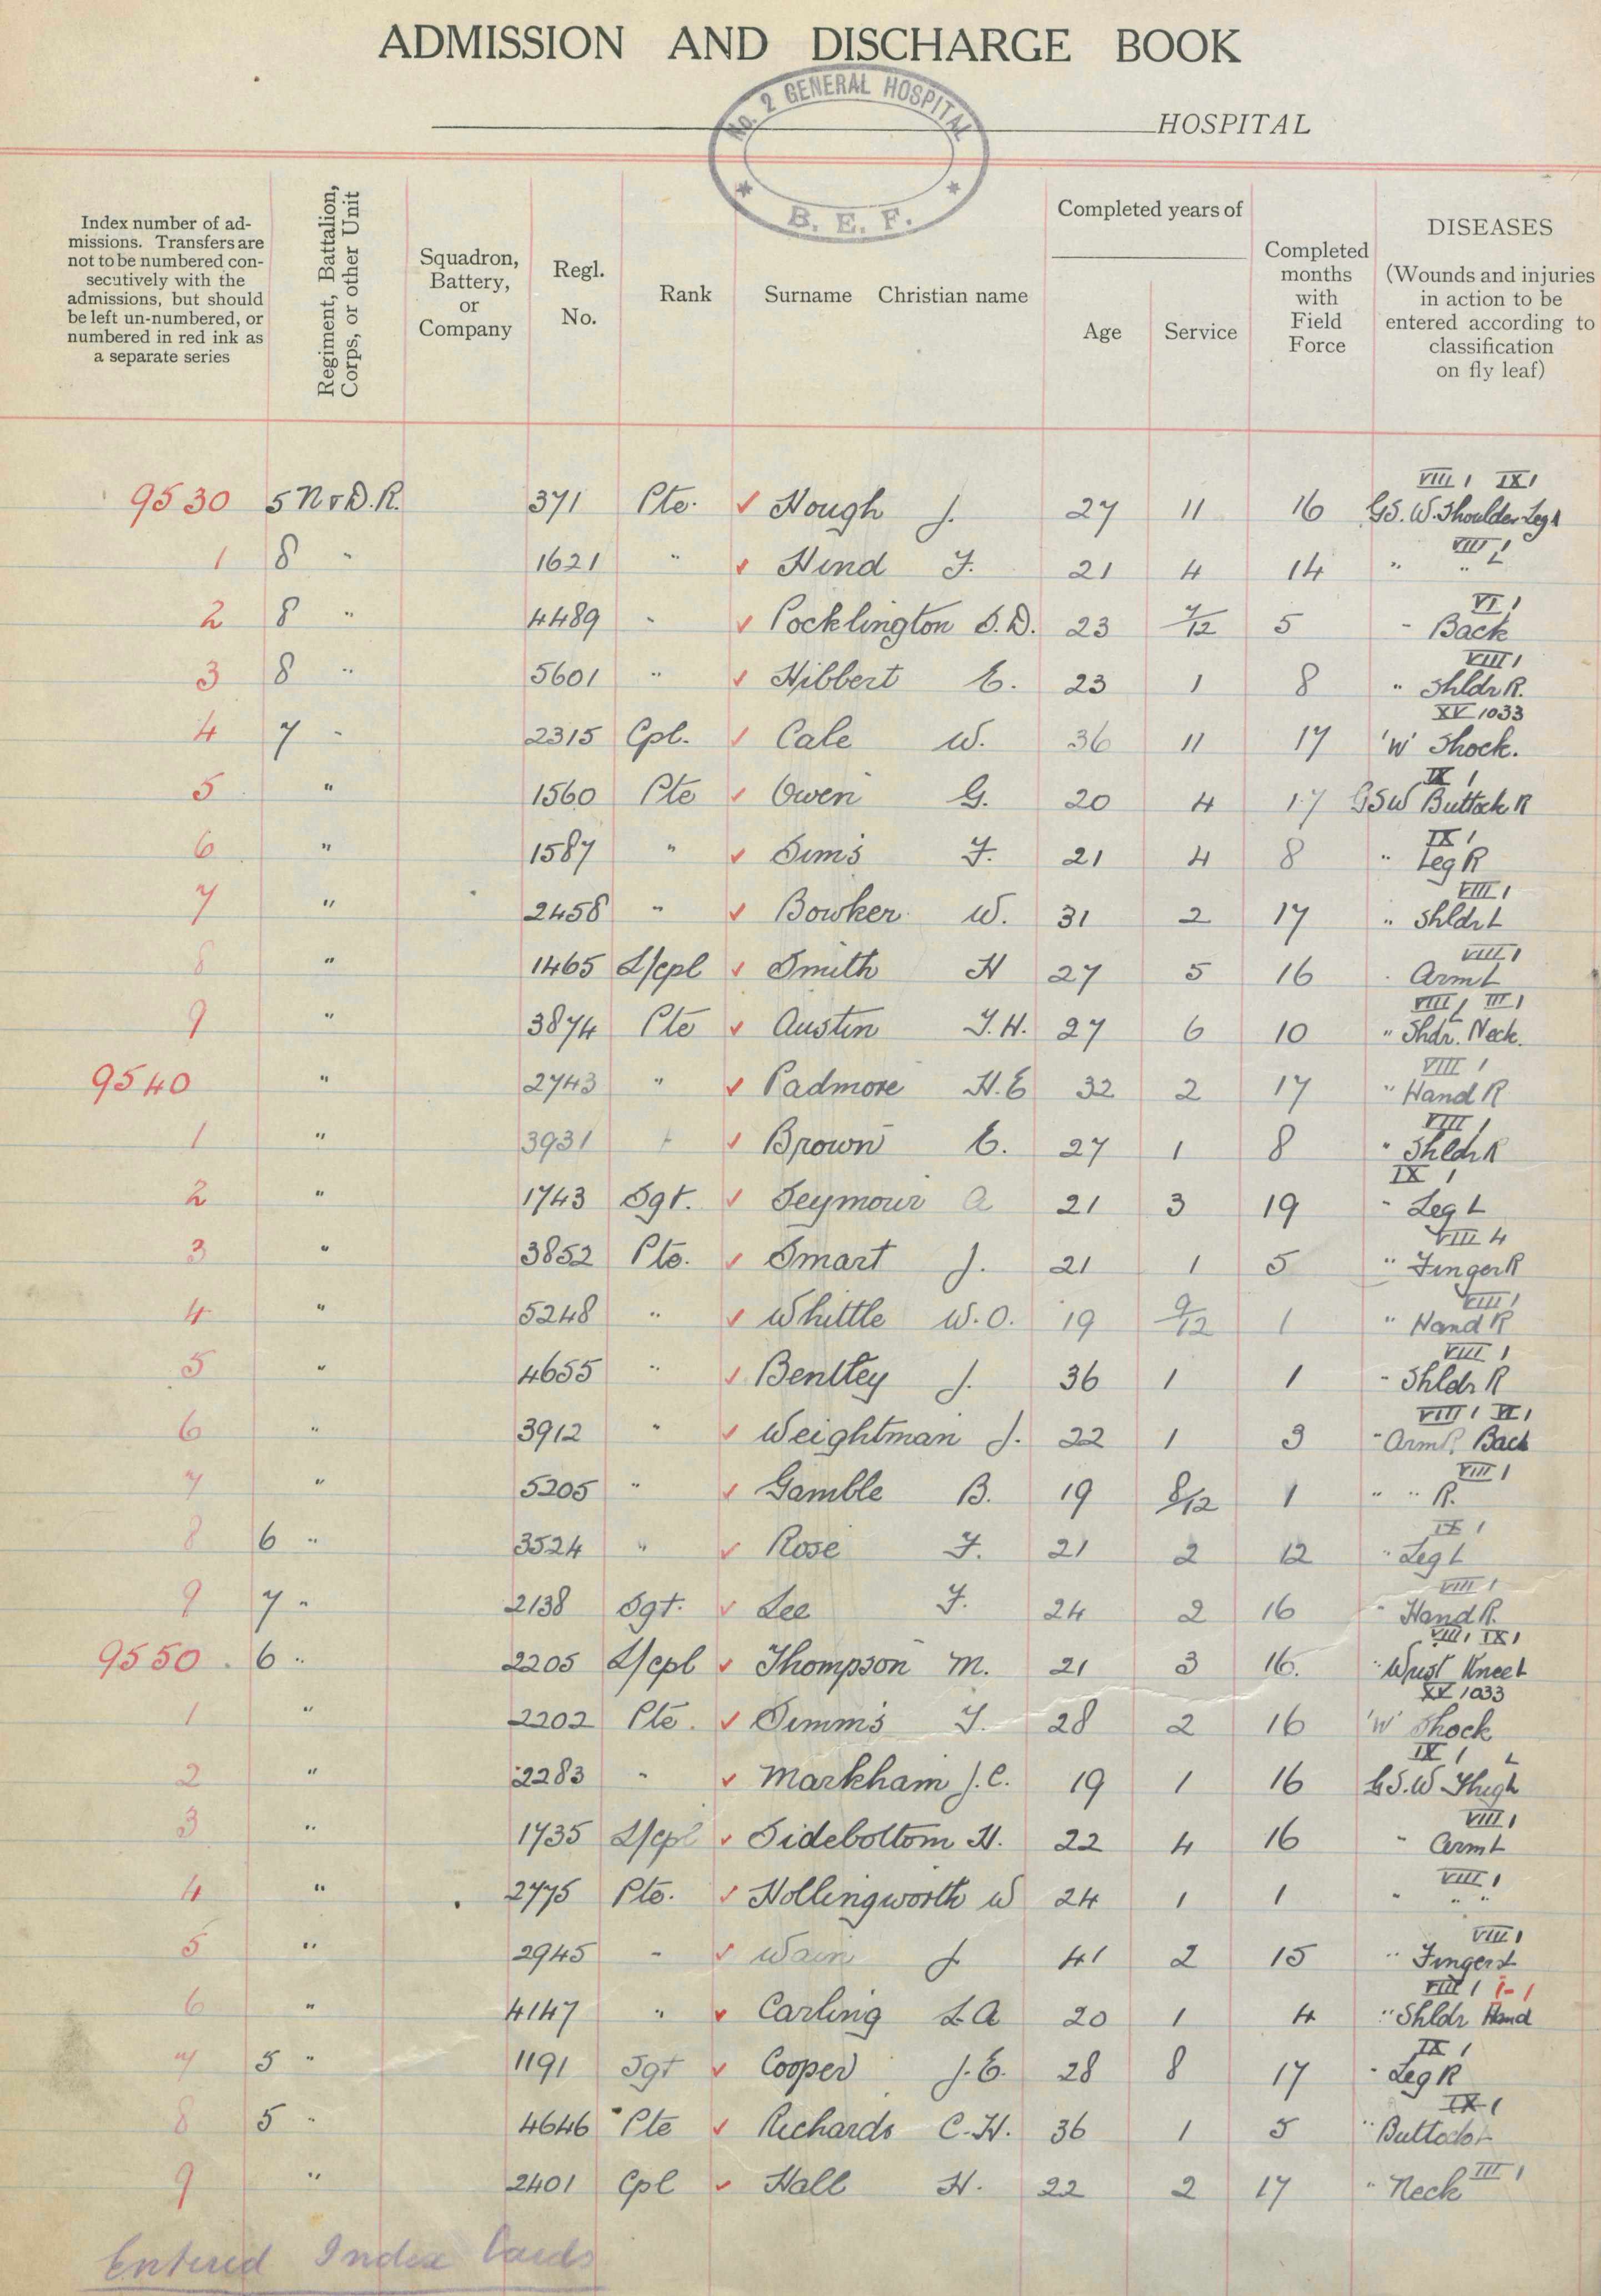 ADMISSION AND DISCHARGE BOOK
No. 2 GENERAL HOSPITAL
B. E. F.
HOSPITAL
Index number of ad-
missions. Transfers are
not to be numbered con-
secutively with the
admissions, but should
be left un-numbered, or
numbered in red ink as
a separate series
Regiment, Battalion,
Corps, or other Unit
Squadron,
Battery,
or
Company
Regl.
No.
Rank
Surname Christian name
Completed years of
Age
Service
Completed
months
with
Field
Force
DISEASES
(Wounds and injuries
in action to be
entered according to
classification
on fly leaf)
VIII 1 IX 1
9530 5 N & D.R. 371 Pte. ✓ Hough J. 27 11 16 G.S.W. Shoulder Leg
VIII 1
1 8 " 1621 " ✓ Hind F. 21 4 14 " " L
VI 1
2 8 " 4489 " ✓ Pocklington S.D. 23 7/12 5 " Back
VIII 1
3 8 " 5601 " ✓ Hibbert E. 23 1 8 " Shldr R.
XV 1033
4 7 " 2315 Cpl. ✓ Cale W. 36 11 17 'W' Shock.
IX 1
5 " 1560 Pte ✓ Owen G. 20 4 17 GSW Buttock R
IX 1
6 " 1587 " ✓ Sims F. 21 4 8 " Leg R
VIII 1
7 " 2458 " ✓ Bowker W. 31 2 17 " Shldr L
VIII 1
8 " 1465 L/cpl ✓ Smith H 27 5 16 " Arm L
VIII 1 III 1
9 " 3874 Pte ✓ Austin J.H. 27 6 10 " Shdr. Neck.
VIII 1
9540 " 2743 " ✓ Padmore H.E 32 2 17 " Hand R
VIII 1
1 " 3931 " ✓ Brown E. 27 1 8 " Shldr R
IX 1
2 " 1743 Sgt. ✓ Seymour A 21 3 19 " Leg L
VIII 4
3 " 3852 Pte. ✓ Smart J. 21 1 5 " Finger R
VIII 1
4 " 5248 " ✓ Whittle W.O. 19 9/12 1 " Hand R
VIII 1
5 " 4655 " ✓ Bentley J. 36 1 1 " Shldr R
VIII 1 VI 1
6 " 3912 " ✓ Weightman J. 22 1 3 " Arm R, Back
VIII 1
7 " 5205 " ✓ Gamble B. 19 8/12 1 " " R.
IX 1
8 6 " 3524 " ✓ Rose F. 21 2 12 " Leg L
VIII 1
9 7 " 2138 Sgt. ✓ Lee F. 24 2 16 " Hand R.
VIII 1 IX 1
9550 6 " 2205 L/cpl ✓ Thompson M. 21 3 16. " Wrist Knee L
XV 1033
1 " 2202 Pte. ✓ Simms J. 28 2 16 'W' Shock
IX 1 L
2 " 2283 " ✓ Markham J.C. 19 1 16 G.S.W Thigh
VIII 1
3 " 1735 L/cpl ✓ Sidebottom H. 22 4 16 " Arm L
VIII 1
4 " 2775 Pte. ✓ Hollingworth W 24 1 1 " " "
VIII 1
5 " 2945 " ✓ Wain J 41 2 15 " Finger L
VIII 1 1-1
6 " 4147 " ✓ Carling L A 20 1 4 " Shldr Hand
IX 1
7 5 " 1191 Sgt ✓ Cooper J.E. 28 8 17 " Leg R
IX 1
8 5 " 4646 Pte ✓ Richards C.H. 36 1 5 " Buttock L
III 1
9 " 2401 Cpl ✓ Hall H. 22 2 17 " Neck
Entered Index Cards